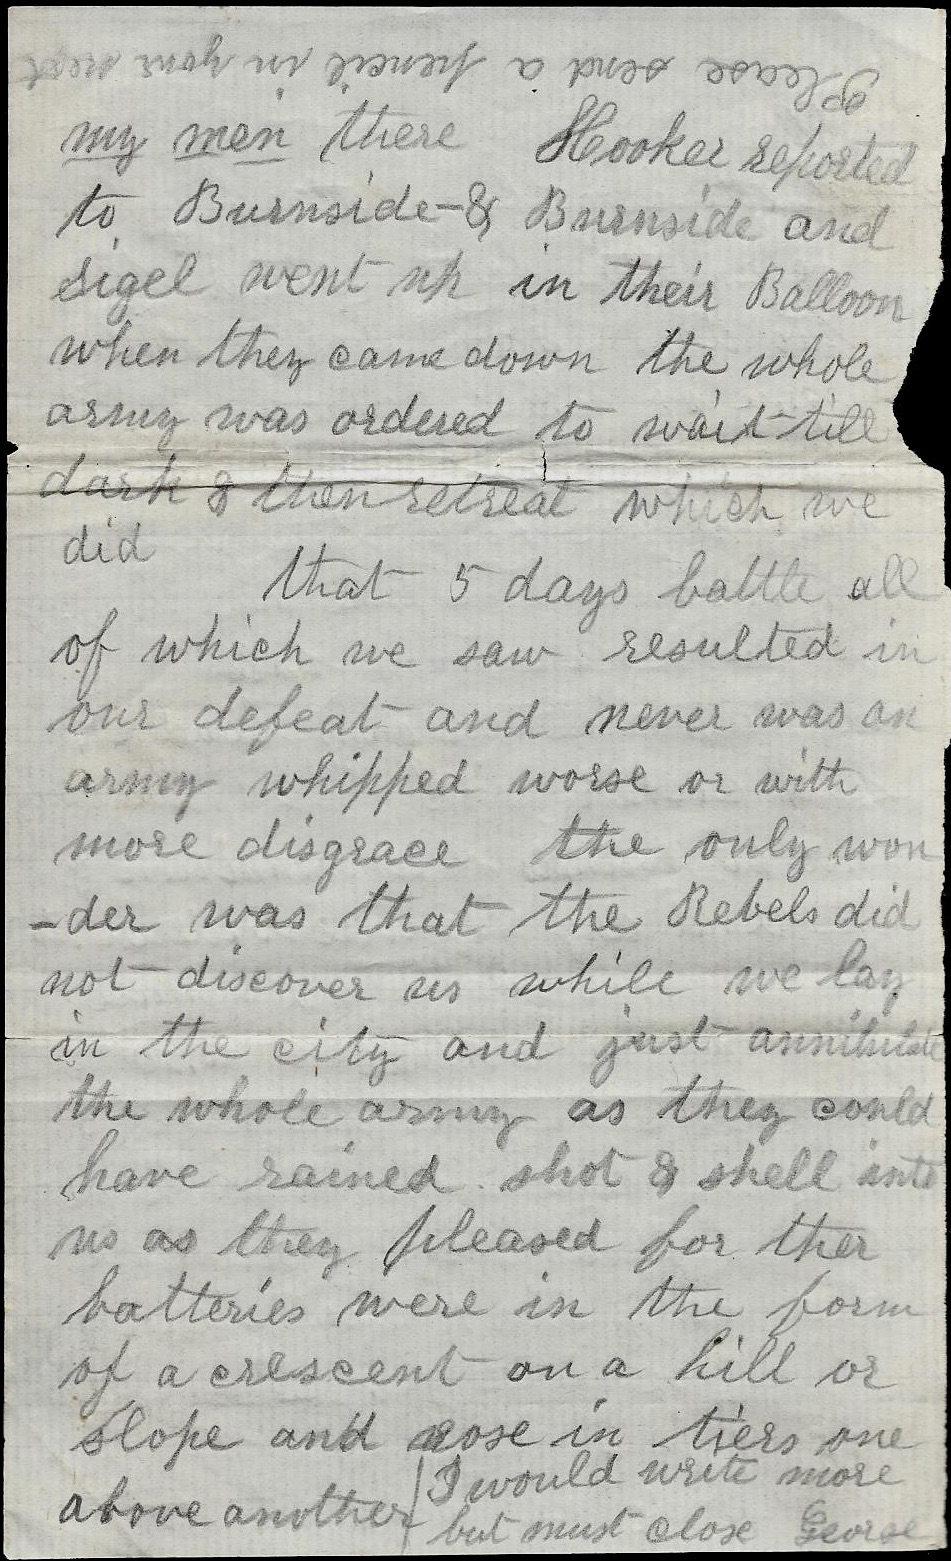 Please send a pencil in your next
my men there Hooker reported
to Burnside-& Burnside and
Sigel went up in their Balloon
when they came down the whole
army was ordered to wait till
dark & then retreat which we
did
that 5 days battle all
of which we saw resulted in
our defeat and never was an
army whipped worse or with
more disgrace the only won
-der was that the Rebels did
not discover us while we lay
in the city and just annihilate
the whole army as they could
have rained shot & shell into
us as they pleased for ther
batteries were in the form
of a crescent on a hill or
slope and rose in tiers one
above another
I would write more
but must close George